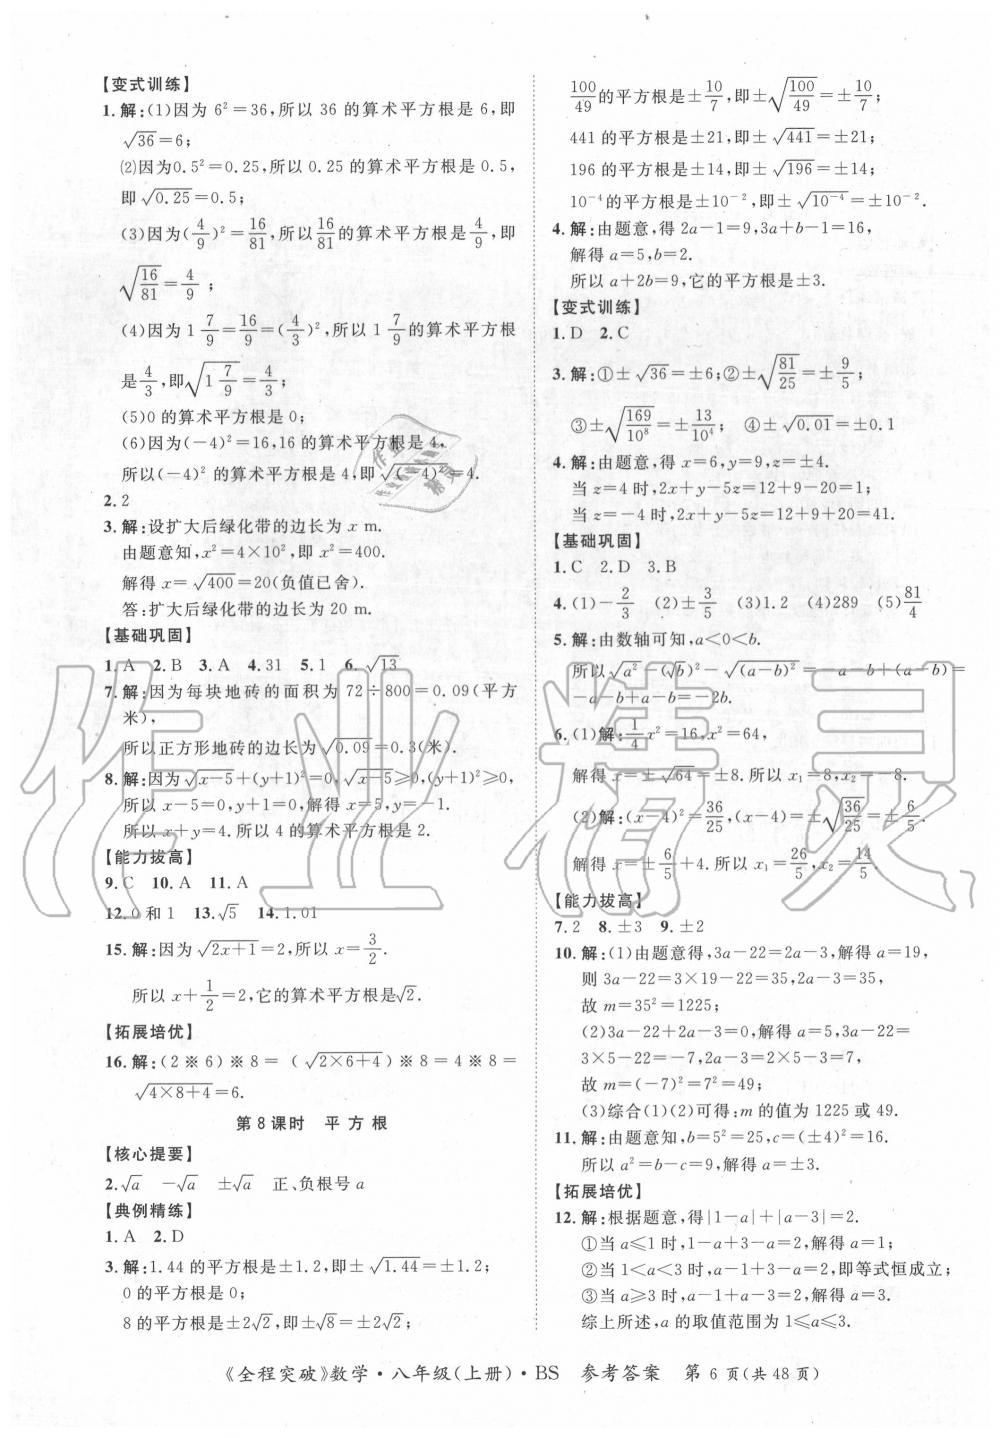 【变式训练】
1.解:(1)因为 6²=36,所以 36 的算术平方根是 6,即
√36=6;
(2)因为0.5²=0.25,所以 0.25 的算术平方根是 0.5,
即√0.25=0.5;
(3)因为(4/9)²=16/81,所以16/81的算术平方根是4/9,即
√(16/81)=4/9;
(4)因为1 7/9=16/9=(4/3)²,所以1 7/9的算术平方根
是4/3,即√(1 7/9)=4/3;
(5)0 的算术平方根是 0;
(6)因为(-4)²=16,16 的算术平方根是 4,
所以(-4)² 的算术平方根是 4,即√(-4)²=4.
2.2
3.解:设扩大后绿化带的边长为 x m.
由题意知,x²=4×10²,即 x²=400.
解得 x=√400=20(负值已舍).
答:扩大后绿化带的边长为 20 m.
【基础巩固】
1.A 2.B 3.A 4.31 5.1 6.√13
7.解:因为每块地砖的面积为 72÷800=0.09(平方
米),
所以正方形地砖的边长为√0.09=0.3(米).
8.解:因为√(x-5)+(y+1)²=0,√(x-5)≥0,(y+1)²≥0,
所以 x-5=0,y+1=0,解得 x=5,y=-1.
所以 x+y=4.所以 4 的算术平方根是 2.
【能力拔高】
9.C 10.A 11.A
12.0 和 1 13.√5 14.1.01
15.解:因为√(2x+1)=2,所以 x=3/2.
所以 x+1/2=2,它的算术平方根是√2.
【拓展培优】
16.解:(2※6)※8=(√(2×6+4))※8=4※8=
√(4×8+4)=6.
第 8 课时 平 方 根
【核心提要】
2.√a -√a ±√a 正、负根号 a
【典例精练】
1.A 2.D
3.解:1.44 的平方根是±1.2,即±√1.44=±1.2;
0 的平方根是 0;
8 的平方根是±2√2,即±√8=±2√2;
100/49的平方根是±10/7,即±√(100/49)=±10/7;
441 的平方根是±21,即±√441=±21;
196 的平方根是±14,即±√196=±14;
10⁻⁴的平方根是±10⁻²,即±√(10⁻⁴)=±10⁻².
4.解:由题意,得 2a-1=9,3a+b-1=16,
解得 a=5,b=2.
所以 a+2b=9,它的平方根是±3.
【变式训练】
1.D 2.C
3.解:①±√36=±6;②±√(81/25)=±9/5;
③±√(169/10⁸)=±13/10⁴; ④±√0.01=±0.1
4.解:由题意,得 x=6,y=9,z=±4.
当 z=4 时,2x+y-5z=12+9-20=1;
当 z=-4 时,2x+y-5z=12+9+20=41.
【基础巩固】
1.C 2.D 3.B
4.(1)-2/3 (2)±3/5 (3)1.2 (4)289 (5)81/4
5.解:由数轴可知,a<0<b.
所以√a²-(√b)²-√(a-b)²=-a-b+(a-b)=
-a-b+a-b=-2b.
6.(1)解:1/4x²=16,x²=64,
解得 x=±√64=±8.所以 x₁=8,x₂=-8.
(2)解:(x-4)²=36/25,(x-4)=±√(36/25)=±6/5.
解得 x=±6/5+4.所以 x₁=26/5,x₂=14/5.
【能力拔高】
7.2 8.±3 9.±2
10.解:(1)由题意得,3a-22=2a-3,解得 a=19,
则 3a-22=3×19-22=35,2a-3=35,
故 m=35²=1225;
(2)3a-22+2a-3=0,解得 a=5,3a-22=
3×5-22=-7,2a-3=2×5-3=7,
故 m=(-7)²=7²=49;
(3)综合(1)(2)可得:m 的值为 1225 或 49.
11.解:由题意知,b=5²=25,c=(±4)²=16.
所以 a²=b-c=9,解得 a=±3.
【拓展培优】
12.解:根据题意,得|1-a|+|a-3|=2.
①当 a≤1 时,1-a+3-a=2,解得 a=1;
②当 1<a<3 时,a-1+3-a=2,即等式恒成立;
③当 a≥3 时,a-1+a-3=2,解得 a=3.
综上所述,a 的取值范围为 1≤a≤3.
《全程突破》数学·八年级(上册)·BS 参考答案 第 6 页(共 48 页)
作业精灵